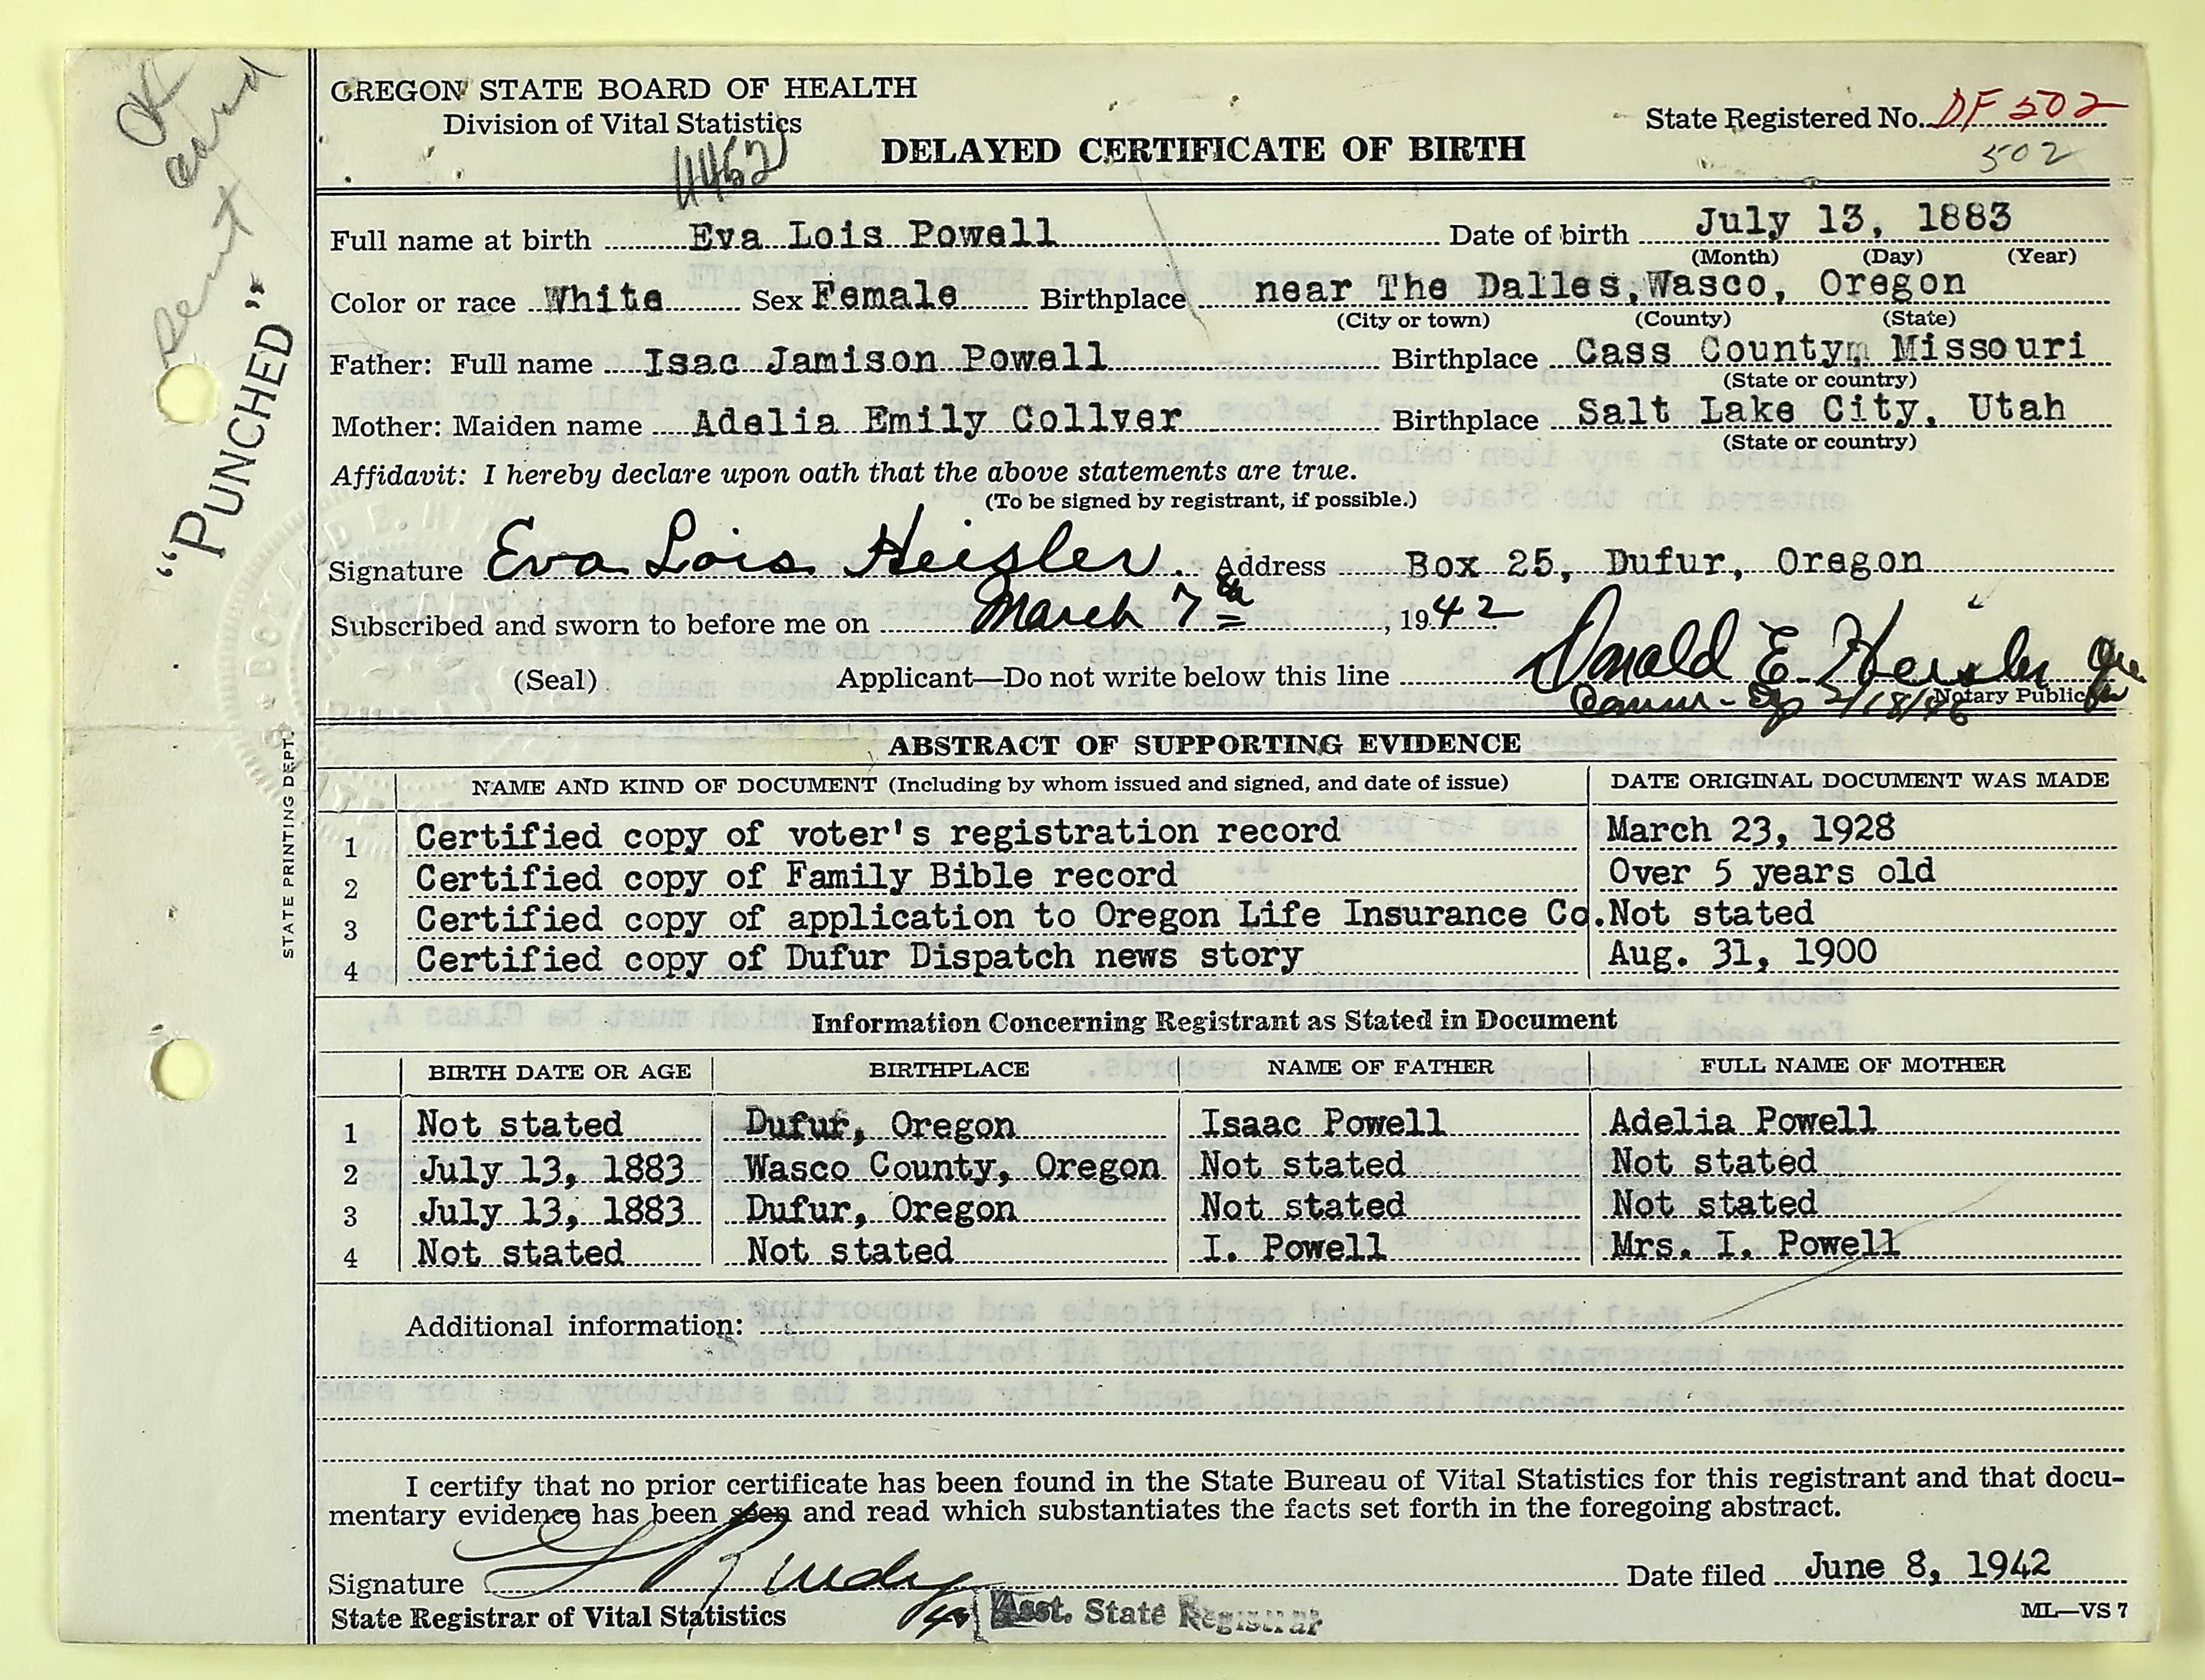 OK
card
sent
"PUNCHED"
STATE PRINTING DEPT.
OREGON STATE BOARD OF HEALTH
Division of Vital Statistics
State Registered No. DF 502
502
DELAYED CERTIFICATE OF BIRTH
Full name at birth Eva Lois Powell Date of birth July 13, 1883
(Month) (Day) (Year)
Color or race White Sex Female Birthplace near The Dalles, Wasco, Oregon
(City or town) (County) (State)
Father: Full name Isac Jamison Powell Birthplace Cass County, Missouri
(State or country)
Mother: Maiden name Adelia Emily Collver Birthplace Salt Lake City, Utah
(State or country)
Affidavit: I hereby declare upon oath that the above statements are true.
(To be signed by registrant, if possible.)
Signature Eva Lois Heisler. Address Box 25, Dufur, Oregon
Subscribed and sworn to before me on March 7th, 1942
(Seal) Applicant—Do not write below this line Donald E. Heisler
Notary Public
ABSTRACT OF SUPPORTING EVIDENCE
NAME AND KIND OF DOCUMENT (Including by whom issued and signed, and date of issue) DATE ORIGINAL DOCUMENT WAS MADE
1 Certified copy of voter's registration record March 23, 1928
2 Certified copy of Family Bible record Over 5 years old
3 Certified copy of application to Oregon Life Insurance Co. Not stated
4 Certified copy of Dufur Dispatch news story Aug. 31, 1900
Information Concerning Registrant as Stated in Document
BIRTH DATE OR AGE BIRTHPLACE NAME OF FATHER FULL NAME OF MOTHER
1 Not stated Dufur, Oregon Isaac Powell Adelia Powell
2 July 13, 1883 Wasco County, Oregon Not stated Not stated
3 July 13, 1883 Dufur, Oregon Not stated Not stated
4 Not stated Not stated I. Powell Mrs. I. Powell
Additional information:
I certify that no prior certificate has been found in the State Bureau of Vital Statistics for this registrant and that docu-
mentary evidence has been seen and read which substantiates the facts set forth in the foregoing abstract.
Signature Date filed June 8, 1942
State Registrar of Vital Statistics Asst. State Registrar
ML—VS 7